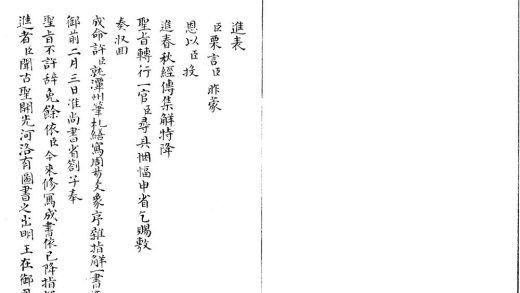 進表
臣栗言臣昨蒙
恩以臣投
進春秋經傳集解特降
聖旨轉行一官臣尋具悃愊申省乞賜敷
奏収囬
成命許臣就潭州筆札繕寫周易爻象序雜指解一書
御前二月三日准尚書省劄子奉
聖旨不許辭免餘依臣今來修寫成書依已降指
進者臣聞古聖開先河洛有圖書之出明王在御